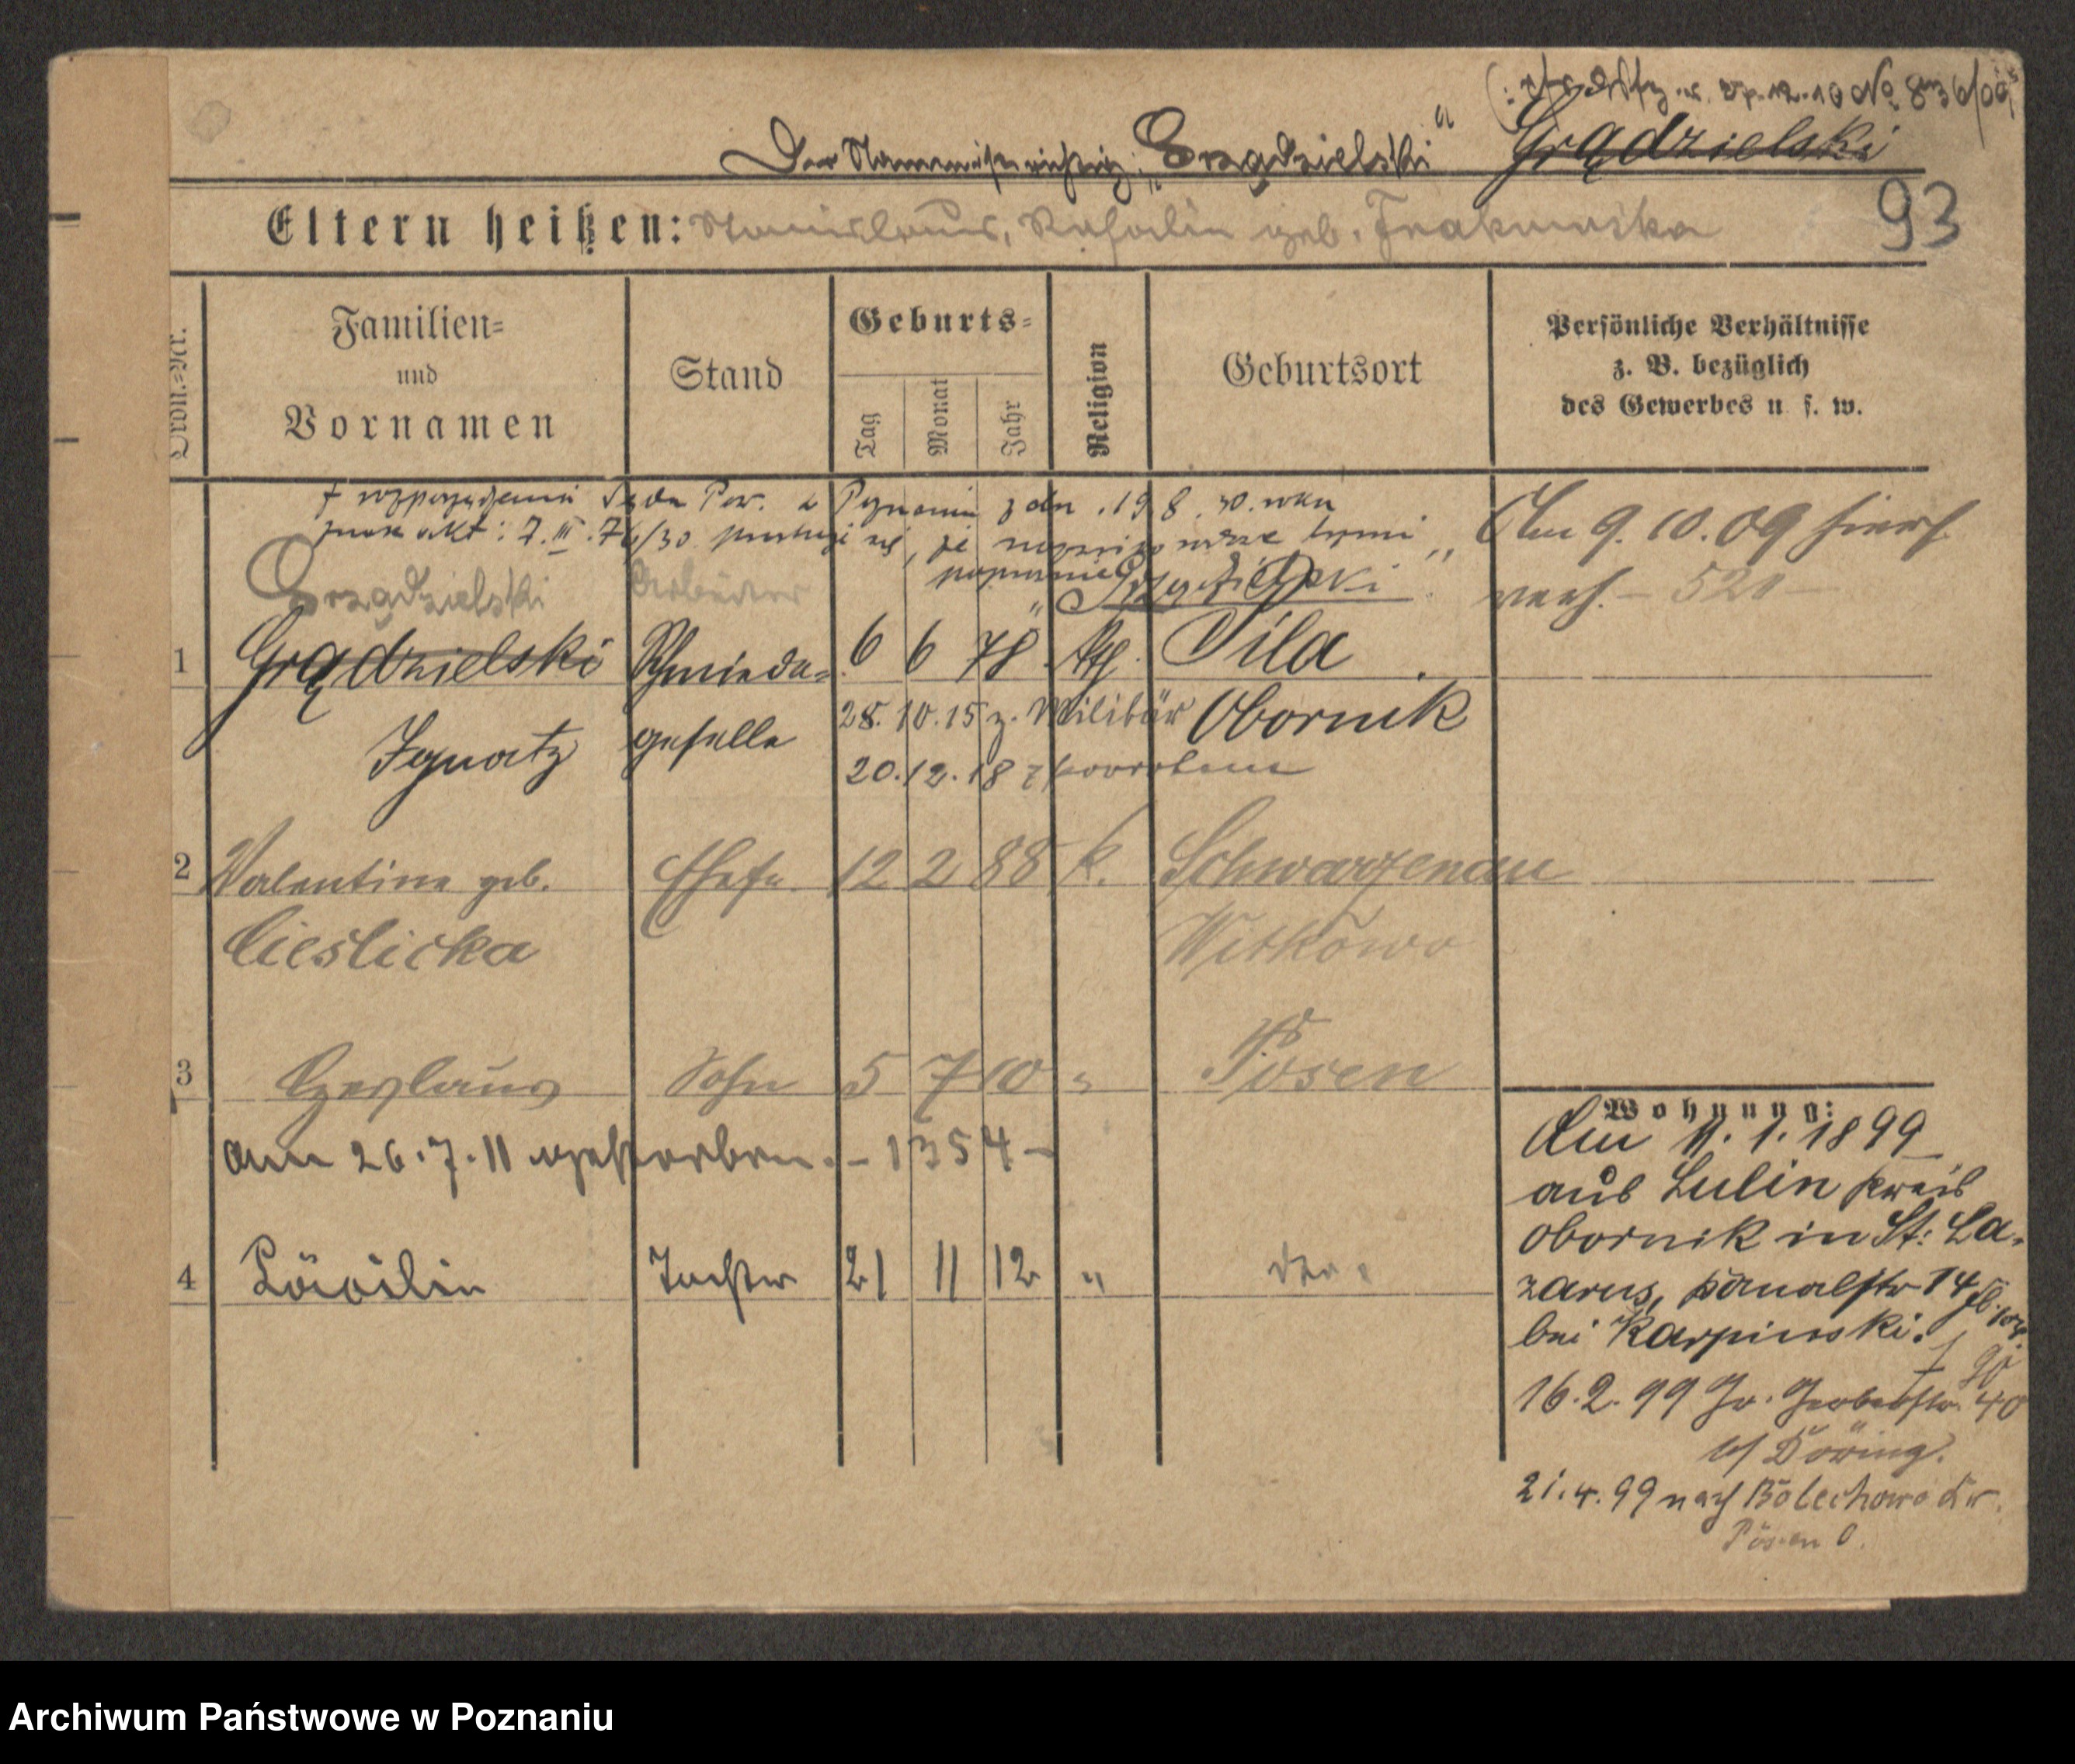 No 836/09
Der Name ist richtig: „Grządzielski“ Grądzielski
Eltern heißen: Stanislaus, geb.
93
Ordn.-Nr.
Familien- und Vornamen
Stand
Geburts-
Tag
Monat
Jahr
Religion
Geburtsort
Persönliche Verhältnisse
z. B. bezüglich
des Gewerbes u. s. w.
Z rozporządzenia Sądu Pow. w Poznaniu z dn. 19.8.30. roku
znak akt: 7.III.76/30 prostuje się, że nazwisko brzmi
poprawnie „Grządzielski“
Am 9.10.09 hierh.
verh. – 521 –
Grządzielski Arbeiter
1 Grądzielski Schmiede- 6 6 78 kath. Pila
Ignatz geselle 28.10.15 z. Militär Obornik
20.12.18
2 Valentine geb. Ehefr. 12 2 88 k. Schwarzenau
Cieslicka Witkowo
3 Czeslaus Sohn 5 7 10 " Posen
am 26.7.11 gestorben. – 1354 –
4 Cäcilia Tochter 21 11 12 "
Wohnung:
Am 11.1.1899
aus Lulin Kreis
Obornik in St: La-
zarus, 14
bei Karpinski.
16.2.99 Gr. Gerberstr. 40
b/ Döring.
21.4.99 nach Bolechowo Kr.
Posen O.
Archiwum Państwowe w Poznaniu